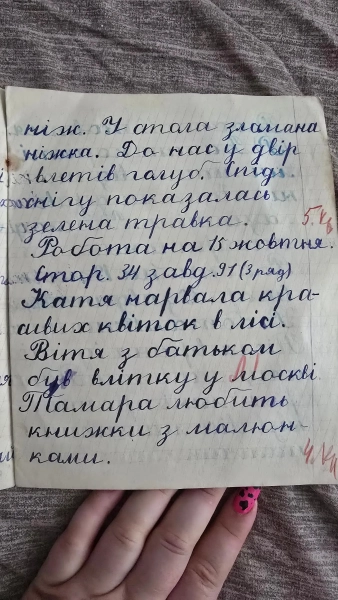 ніж. У стола зламана
ніжка. До нас у двір
влетів голуб. Спід
снігу показалась
зелена травка.
Робота на 15 жовтня.
Стор. 34 завд. 91 (3 ряд)
Катя нарвала кра-
сивих квіток в лісі.
Вітя з батьком
був влітку у Москві
Тамара любить
книжки з малюн-
ками.